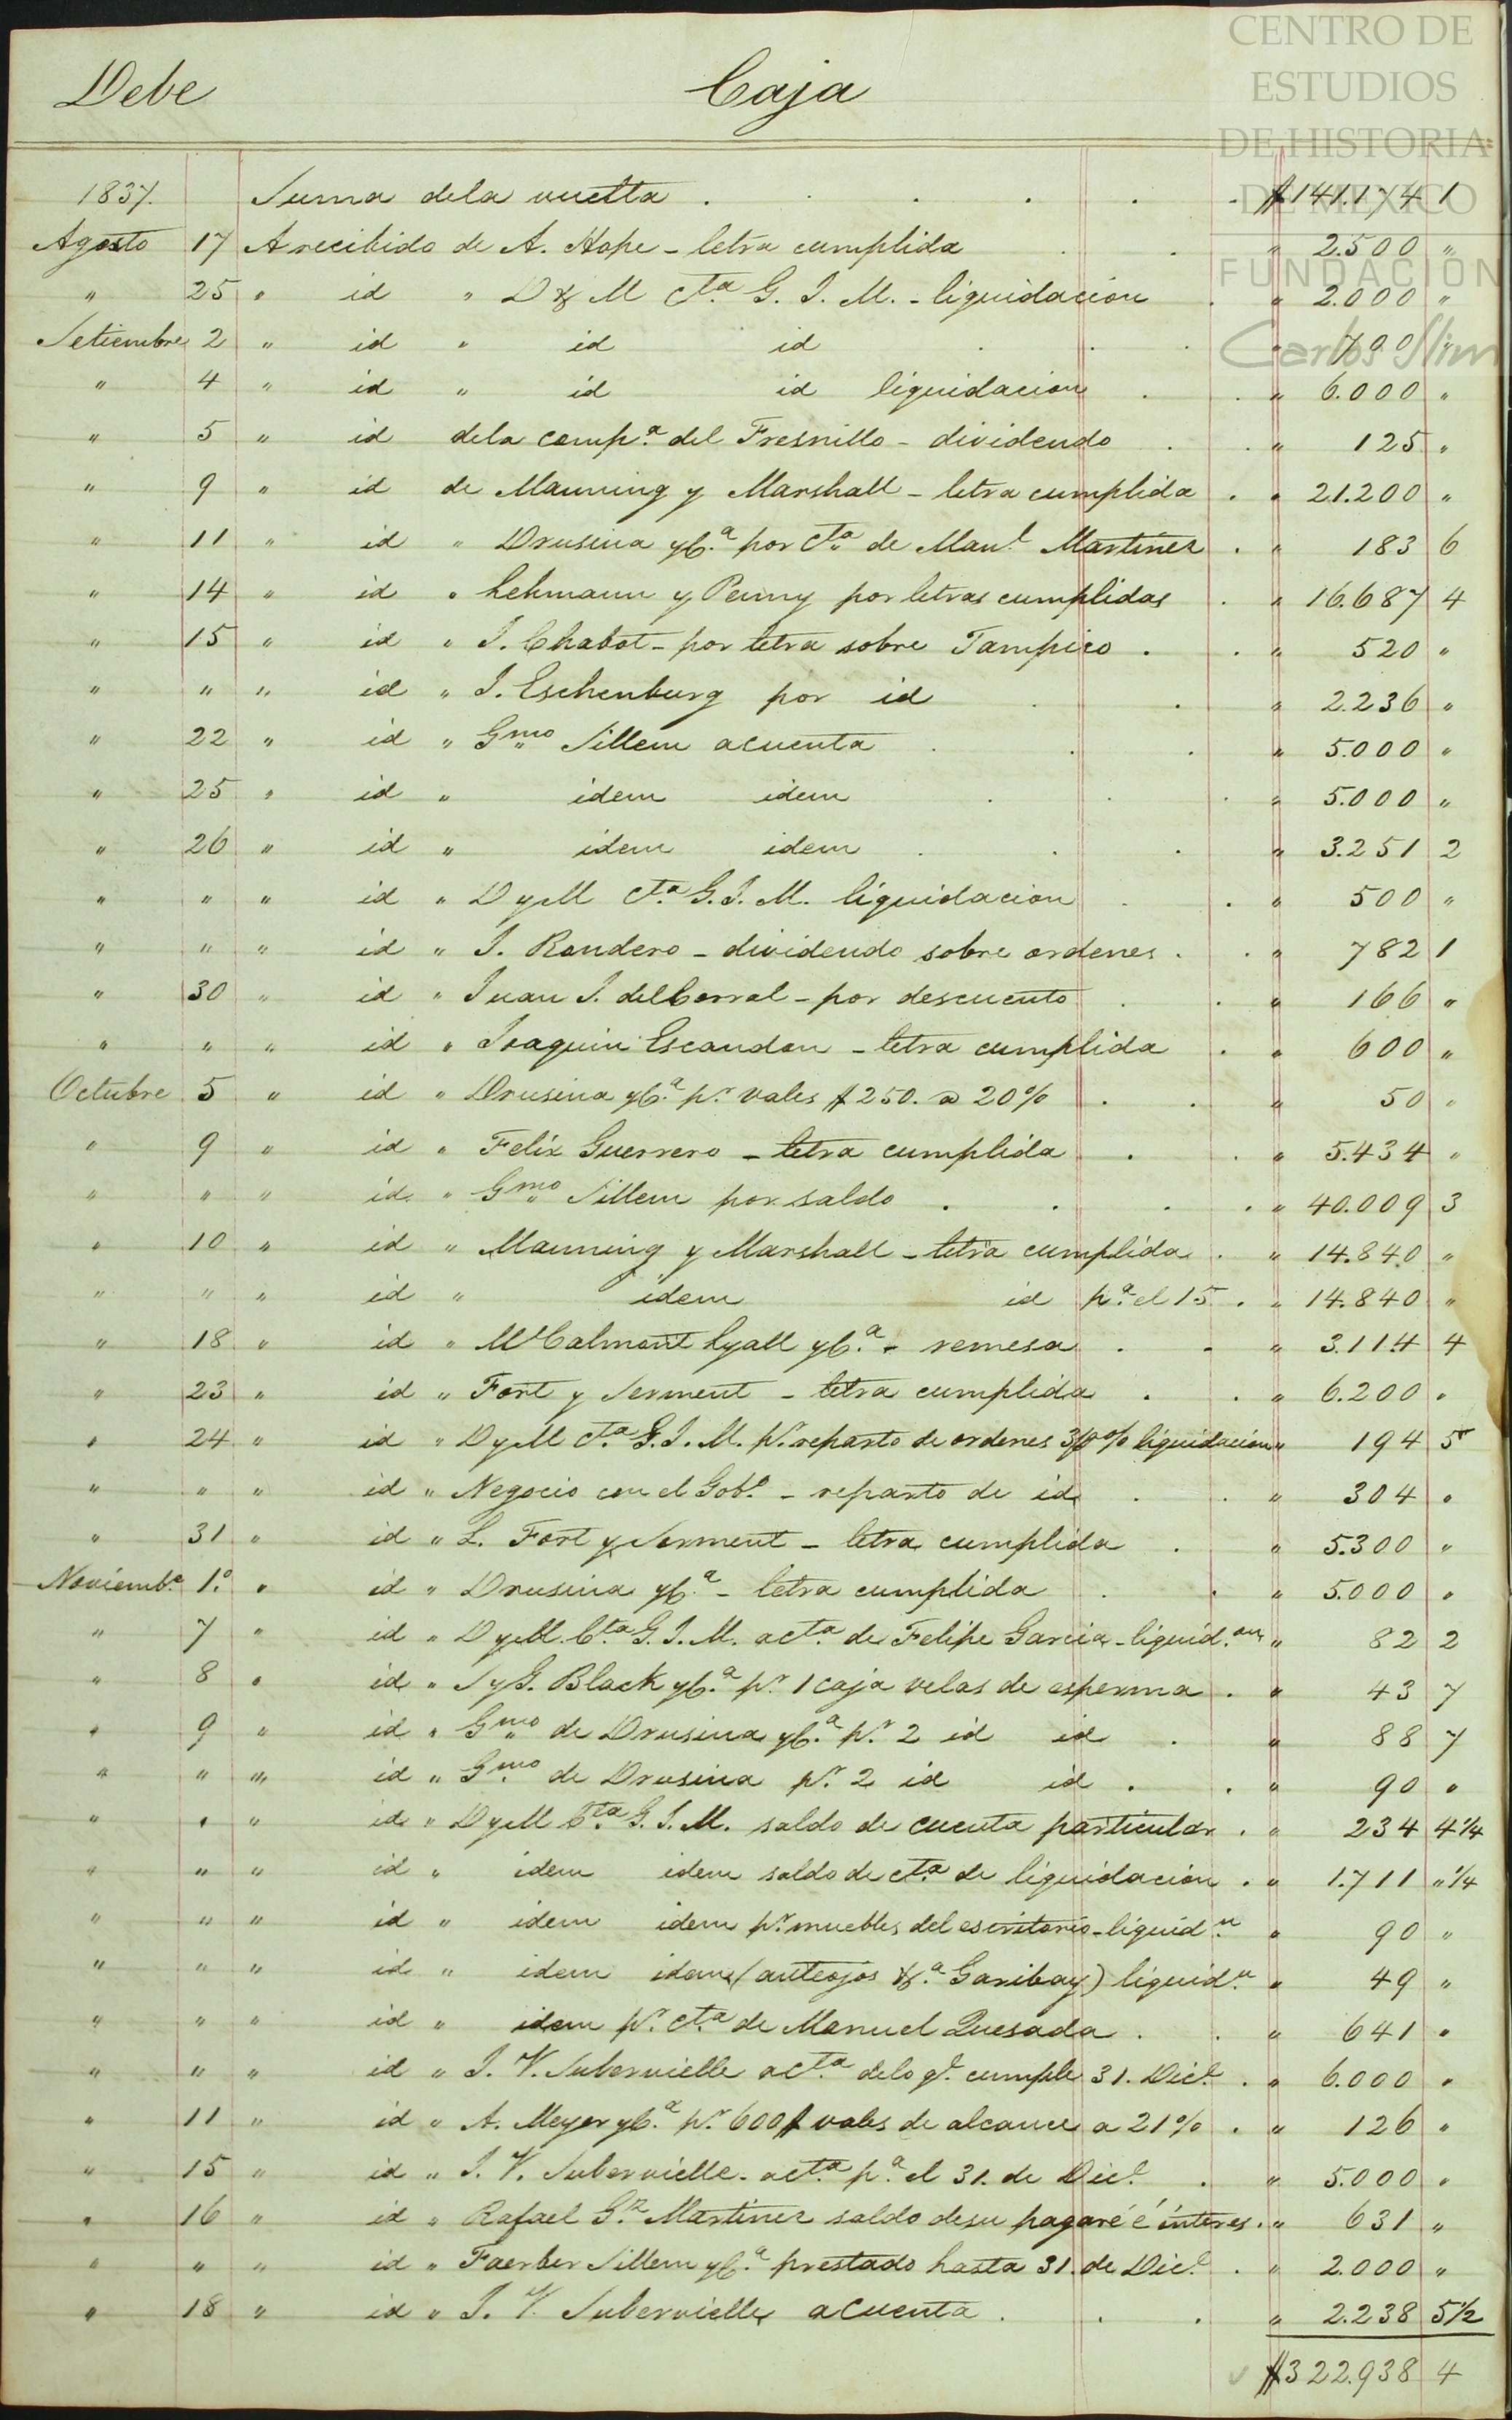 CENTRO DE
ESTUDIOS
DE HISTORIA
DE MEXICO
FUNDACIÓN
Carlos Slim
Debe Caja
1837. Suma dela vuelta . . . . . $141.174 1
Agosto 17 A recibido de A. Hope - letra cumplida . . " 2.500 "
" 25 " id " D & M Cta. G. J. M. - liquidacion . " 2.000 "
Setiembre 2 " id " id id . . . " 700 "
" 4 " id " id id liquidacion . . " 6.000 "
" 5 " id dela comp.a del Fresnillo - dividendo . . " 125 "
" 9 " id de Manning y Marshall - letra cumplida . " 21.200 "
" 11 " id " Drusina yC.a por Cta. de Man.l Martinez . " 183 6
" 14 " id " Lehmann y Penny por letras cumplidas . " 16.687 4
" 15 " id " J. Chabot - por letra sobre Tampico . . " 520 "
" " " id " J. Eschenburg por id . . " 2.236 "
" 22 " id " Gmo. Sillem acuenta . . . " 5.000 "
" 25 " id " idem idem . . . " 5.000 "
" 26 " id " idem idem . . . " 3.251 2
" " " id " D y M Cta. G. J. M. liquidacion . . " 500 "
" " " id " J. Rondero - dividendo sobre ordenes . . " 782 1
" 30 " id " Juan J. del Corral - por descuento . . " 166 "
" " " id " Joaquin Escandon - letra cumplida . " 600 "
Octubre 5 " id " Drusina yC.a p.r vales $250. a 20% . . " 50 "
" 9 " id " Felix Guerrero - letra cumplida . . " 5.434 "
" " " id " Gmo. Sillem por saldo . . . . " 40.009 3
" 10 " id " Manning y Marshall - letra cumplida . " 14.840 "
" " " id " idem id p.a el 15 . " 14.840 "
" 18 " id " McCalmont Lyall yC.a - remesa . . " 3.114 4
" 23 " id " Fort y Serment - letra cumplida . . " 6.200 "
" 24 " id " D y M Cta. G. J. M. p.r reparto de ordenes liquidacion " 194 5
" " " id " Negocio con el Gob.o - reparto de id . . " 304 "
" 31 " id " L. Fort y Serment - letra cumplida . " 5.300 "
Noviemb.e 1.o " id " Drusina yC.a - letra cumplida . . " 5.000 "
" 7 " id " D y M. Cta. G. J. M. acta. de Felipe Garcia - liquid.on " 82 2
" 8 " id " J y G. Black yC.a p.r 1 caja velas de esperma . " 43 7
" 9 " id " Gmo. de Drusina yC.a p.r 2 id id . " 88 7
" " " id " Gmo. de Drusina p.r 2 id id . . " 90 "
" " " id " D y M Cta. G. J. M. saldo de cuenta particular . " 234 4 1/4
" " " id " idem idem saldo de cta. de liquidacion . " 1.711 " 1/4
" " " id " idem idem p.r muebles del escritorio - liquid.n " 90 "
" " " id " idem idem (anteojos &.a Garibay) liquid.n " 49 "
" " " id " idem p.r cta. de Manuel Quesada . . " 641 "
" " " id " J. V. Subervielle acta. delo q.e cumple 31. Dic.e . " 6.000 "
" 11 " id " A. Meyer yC.a p.r 600$ vales de alcance a 21% . " 126 "
" 15 " id " J. V. Subervielle - acta. p.a el 31. de Dic.e . " 5.000 "
" 16 " id " Rafael G.z Martinez saldo desu pagaré é interes . " 631 "
" " " id " Faerber Sillem yC.a prestado hasta 31. de Dic.e . " 2.000 "
" 18 " id " J. V. Subervielle acuenta . . . " 2.238 5 1/2
$322.938 4